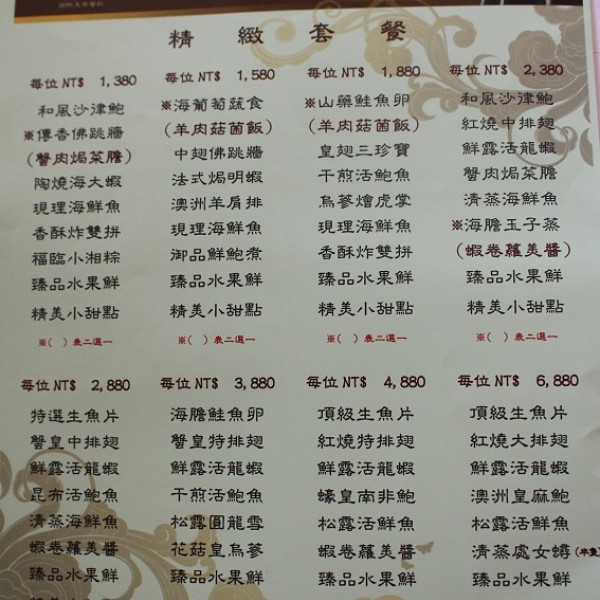 精緻套餐
每位 NT$ 1,380
和風沙律鮑
※傳香佛跳牆
(蟹肉焗菜膽)
陶燒海大蝦
現理海鮮魚
香酥炸雙拼
福臨小湘粽
臻品水果鮮
精美小甜點
※( )表二選一
每位 NT$ 1,580
※海葡萄蔬食
(羊肉菇菌飯)
中翅佛跳牆
法式焗明蝦
澳洲羊肩排
現理海鮮魚
御品鮮鮑煮
臻品水果鮮
精美小甜點
※( )表二選一
每位 NT$ 1,880
※山藥鮭魚卵
(羊肉菇菌飯)
皇翅三珍寶
干煎活鮑魚
烏蔘燴虎掌
現理海鮮魚
香酥炸雙拼
臻品水果鮮
精美小甜點
※( )表二選一
每位 NT$ 2,380
和風沙律鮑
紅燒中排翅
鮮露活龍蝦
蟹肉焗菜膽
清蒸海鮮魚
※海膽玉子蒸
(蝦卷蘿美醬)
臻品水果鮮
精美小甜點
※( )表二選一
每位 NT$ 2,880
特選生魚片
蟹皇中排翅
鮮露活龍蝦
昆布活鮑魚
清蒸海鮮魚
蝦卷蘿美醬
臻品水果鮮
每位 NT$ 3,880
海膽鮭魚卵
蟹皇特排翅
鮮露活龍蝦
干煎活鮑魚
松露圓龍雪
花菇皇烏蔘
臻品水果鮮
每位 NT$ 4,880
頂級生魚片
紅燒特排翅
鮮露活龍蝦
蠔皇南非鮑
松露活鮮魚
蝦卷蘿美醬
臻品水果鮮
每位 NT$ 6,880
頂級生魚片
紅燒大排翅
鮮露活龍蝦
澳洲皇麻鮑
松露活鮮魚
清蒸處女蟳(半隻)
臻品水果鮮